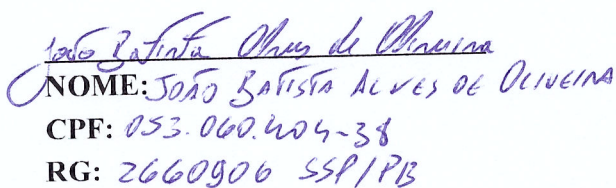 João Batista Alves de Oliveira
NOME: JOÃO BATISTA ALVES DE OLIVEIRA
CPF: 053.060.404-38
RG: 2660906 SSP/PB